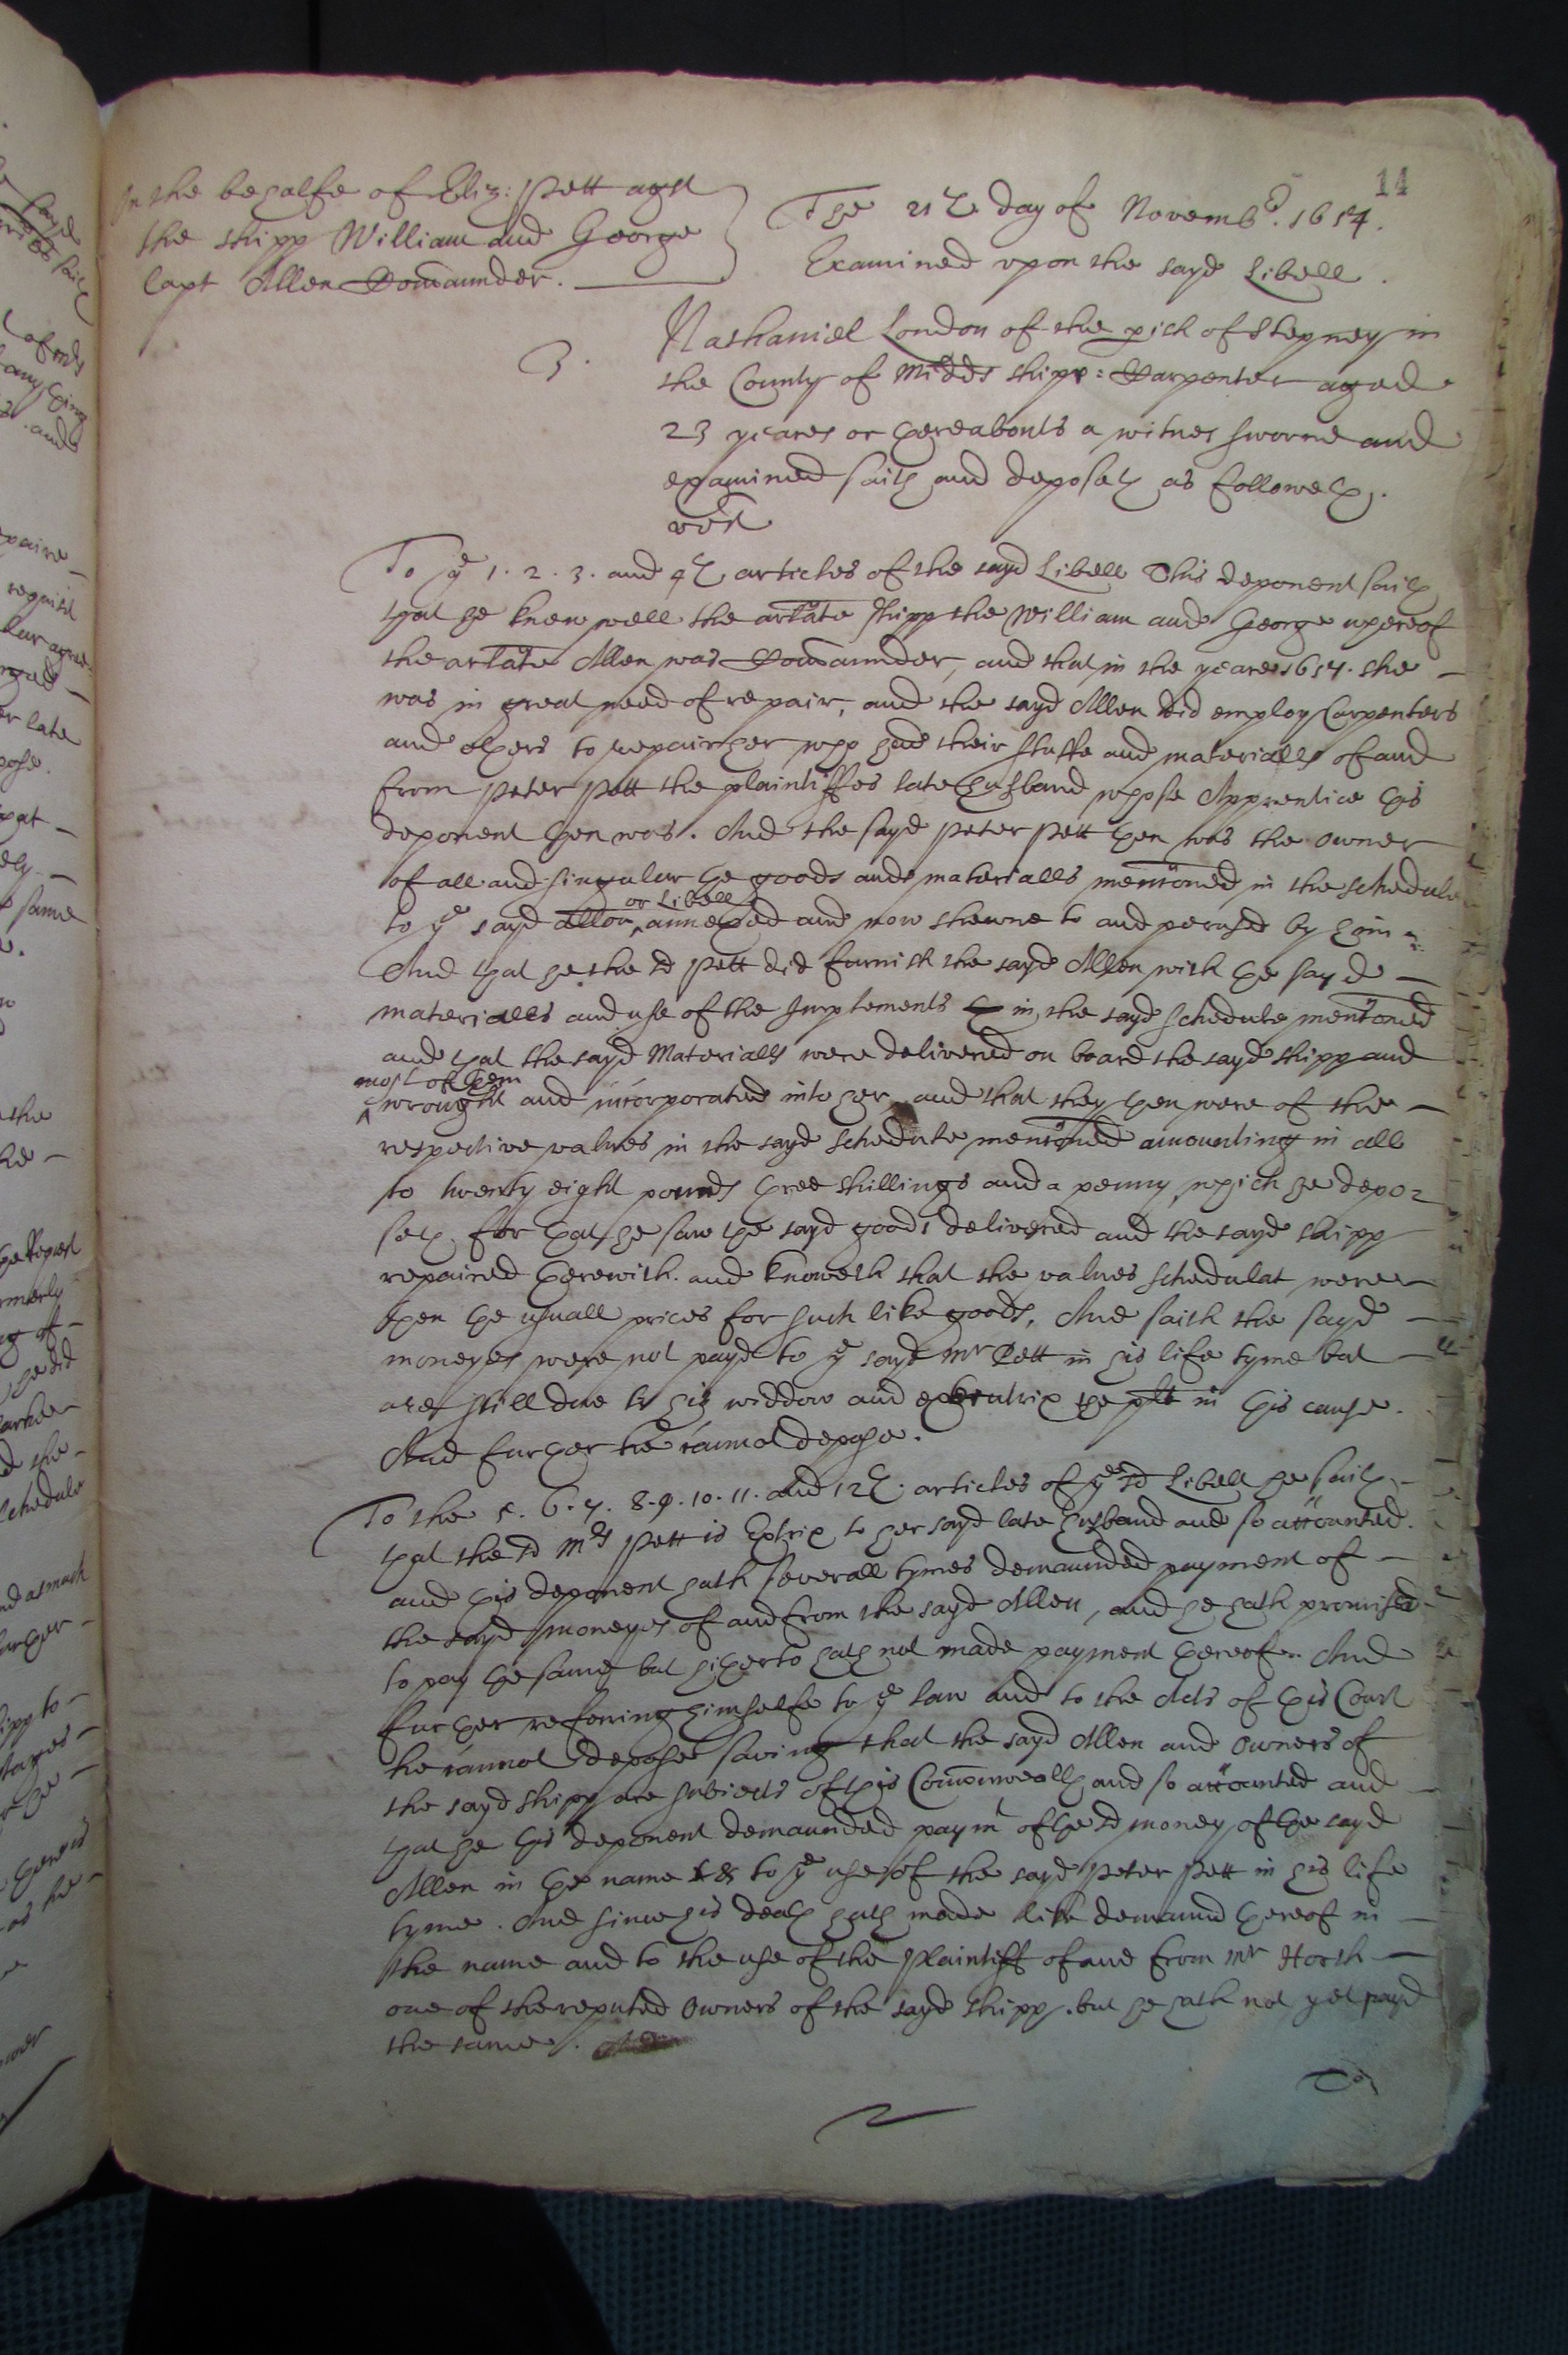 14
In the behalfe of Eliz: Pett agst
the shipp William and George
Capt Allen Comaunder.
The 21th day of Novembr. 1654.
Examined upon the sayd Libell.
3.
Nathaniel London of the pish of Stepney in
the County of Midds shipp: Carpenter aged
23 yeares or thereabouts a witnes sworne and
examined saith and deposeth as followeth.
vizt
To ye 1. 2. 3. and 4th articles of the sayd Libell This deponent saith
that he knew well the arlate shipp the William and George whereof
the arlate Allen was Comaunder, and that in the yeare 1654. she
was in great need of repair, and the sayd Allen did employ Carpenters
and others to repair her who had their stuffe and materialls of and
from Peter Pett the plaintiffes late husband whose Apprentice this
deponent then was. And the sayd Peter Pett then was the owner
of all and singular the goods and materialls mentioned in the schedule
or Libell
to ye sayd allon annexed and now shewne to and perused by him
And that he the sd Pett did furnish the sayd Allen with the sayd
materialls and use of the Implements in the sayd schedule mentioned
and that the sayd Materialls were delivered on board the sayd shipp and
most of them
wrought and incorporated into her, and that they then were of the
respective values in the sayd schedule mentioned amounting in all
to twenty eight pounds three shillings and a penny, which he depo=
seth for that he saw the sayd goods delivered and the sayd shipp
repaired therewith. and knoweth that the values schedulat were
then the usuall prices for such like goods, And saith the sayd
moneyes were not payd to ye sayd Mr Pett in his life tyme but
are still due to his widdow and executrix the plt in this cause.
And further he cannot depose.
To the 5. 6. 7. 8. 9. 10. 11. and 12th. articles of ye sd Libell he saith
that the sd Mrs Pett is Extrix to her sayd late husband and so accounted.
and this deponent hath severall tymes demaunded payment of
the sayd moneyes of and from the sayd Allen, and he hath promised
to pay the same but hitherto hath not made payment thereof. And
further referring himselfe to ye law and to the Acts of this Court
he cannot depose saving that the sayd Allen and Owners of
the sayd shipp are subiects of this Comonwealth and so accounted and
that he this deponent demaunded paymt of the sd money of the sayd
Allen in the name & to ye use of the sayd Peter Pett in his life
tyme. And since his death hath made like demaund thereof in
the name and to the use of the Plaintiff of and from Mr Horth
one of the reputed Owners of the sayd shipp. but he hath not yet payd
the same.